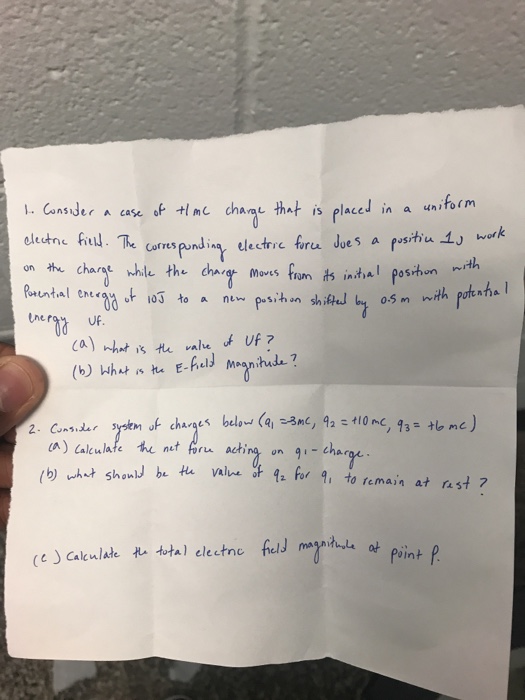 1. Consider a case of +1mC charge that is placed in a uniform
electric field. The corresponding electric force does a positive 1J work
on the charge while the charge moves from its initial position with
Potential energy of 10J to a new position shifted by 0.5m with potential
energy UF.
(a) what is the value of Uf?
(b) What is the E-field Magnitude?
2. Consider system of charges below (q1 =-3mC, q2 = +10mC, q3 = +6mC)
(a) Calculate the net force acting on q1-charge.
(b) what should be the value of q2 for q1 to remain at rest?
(c) Calculate the total electric field magnitude at point P.